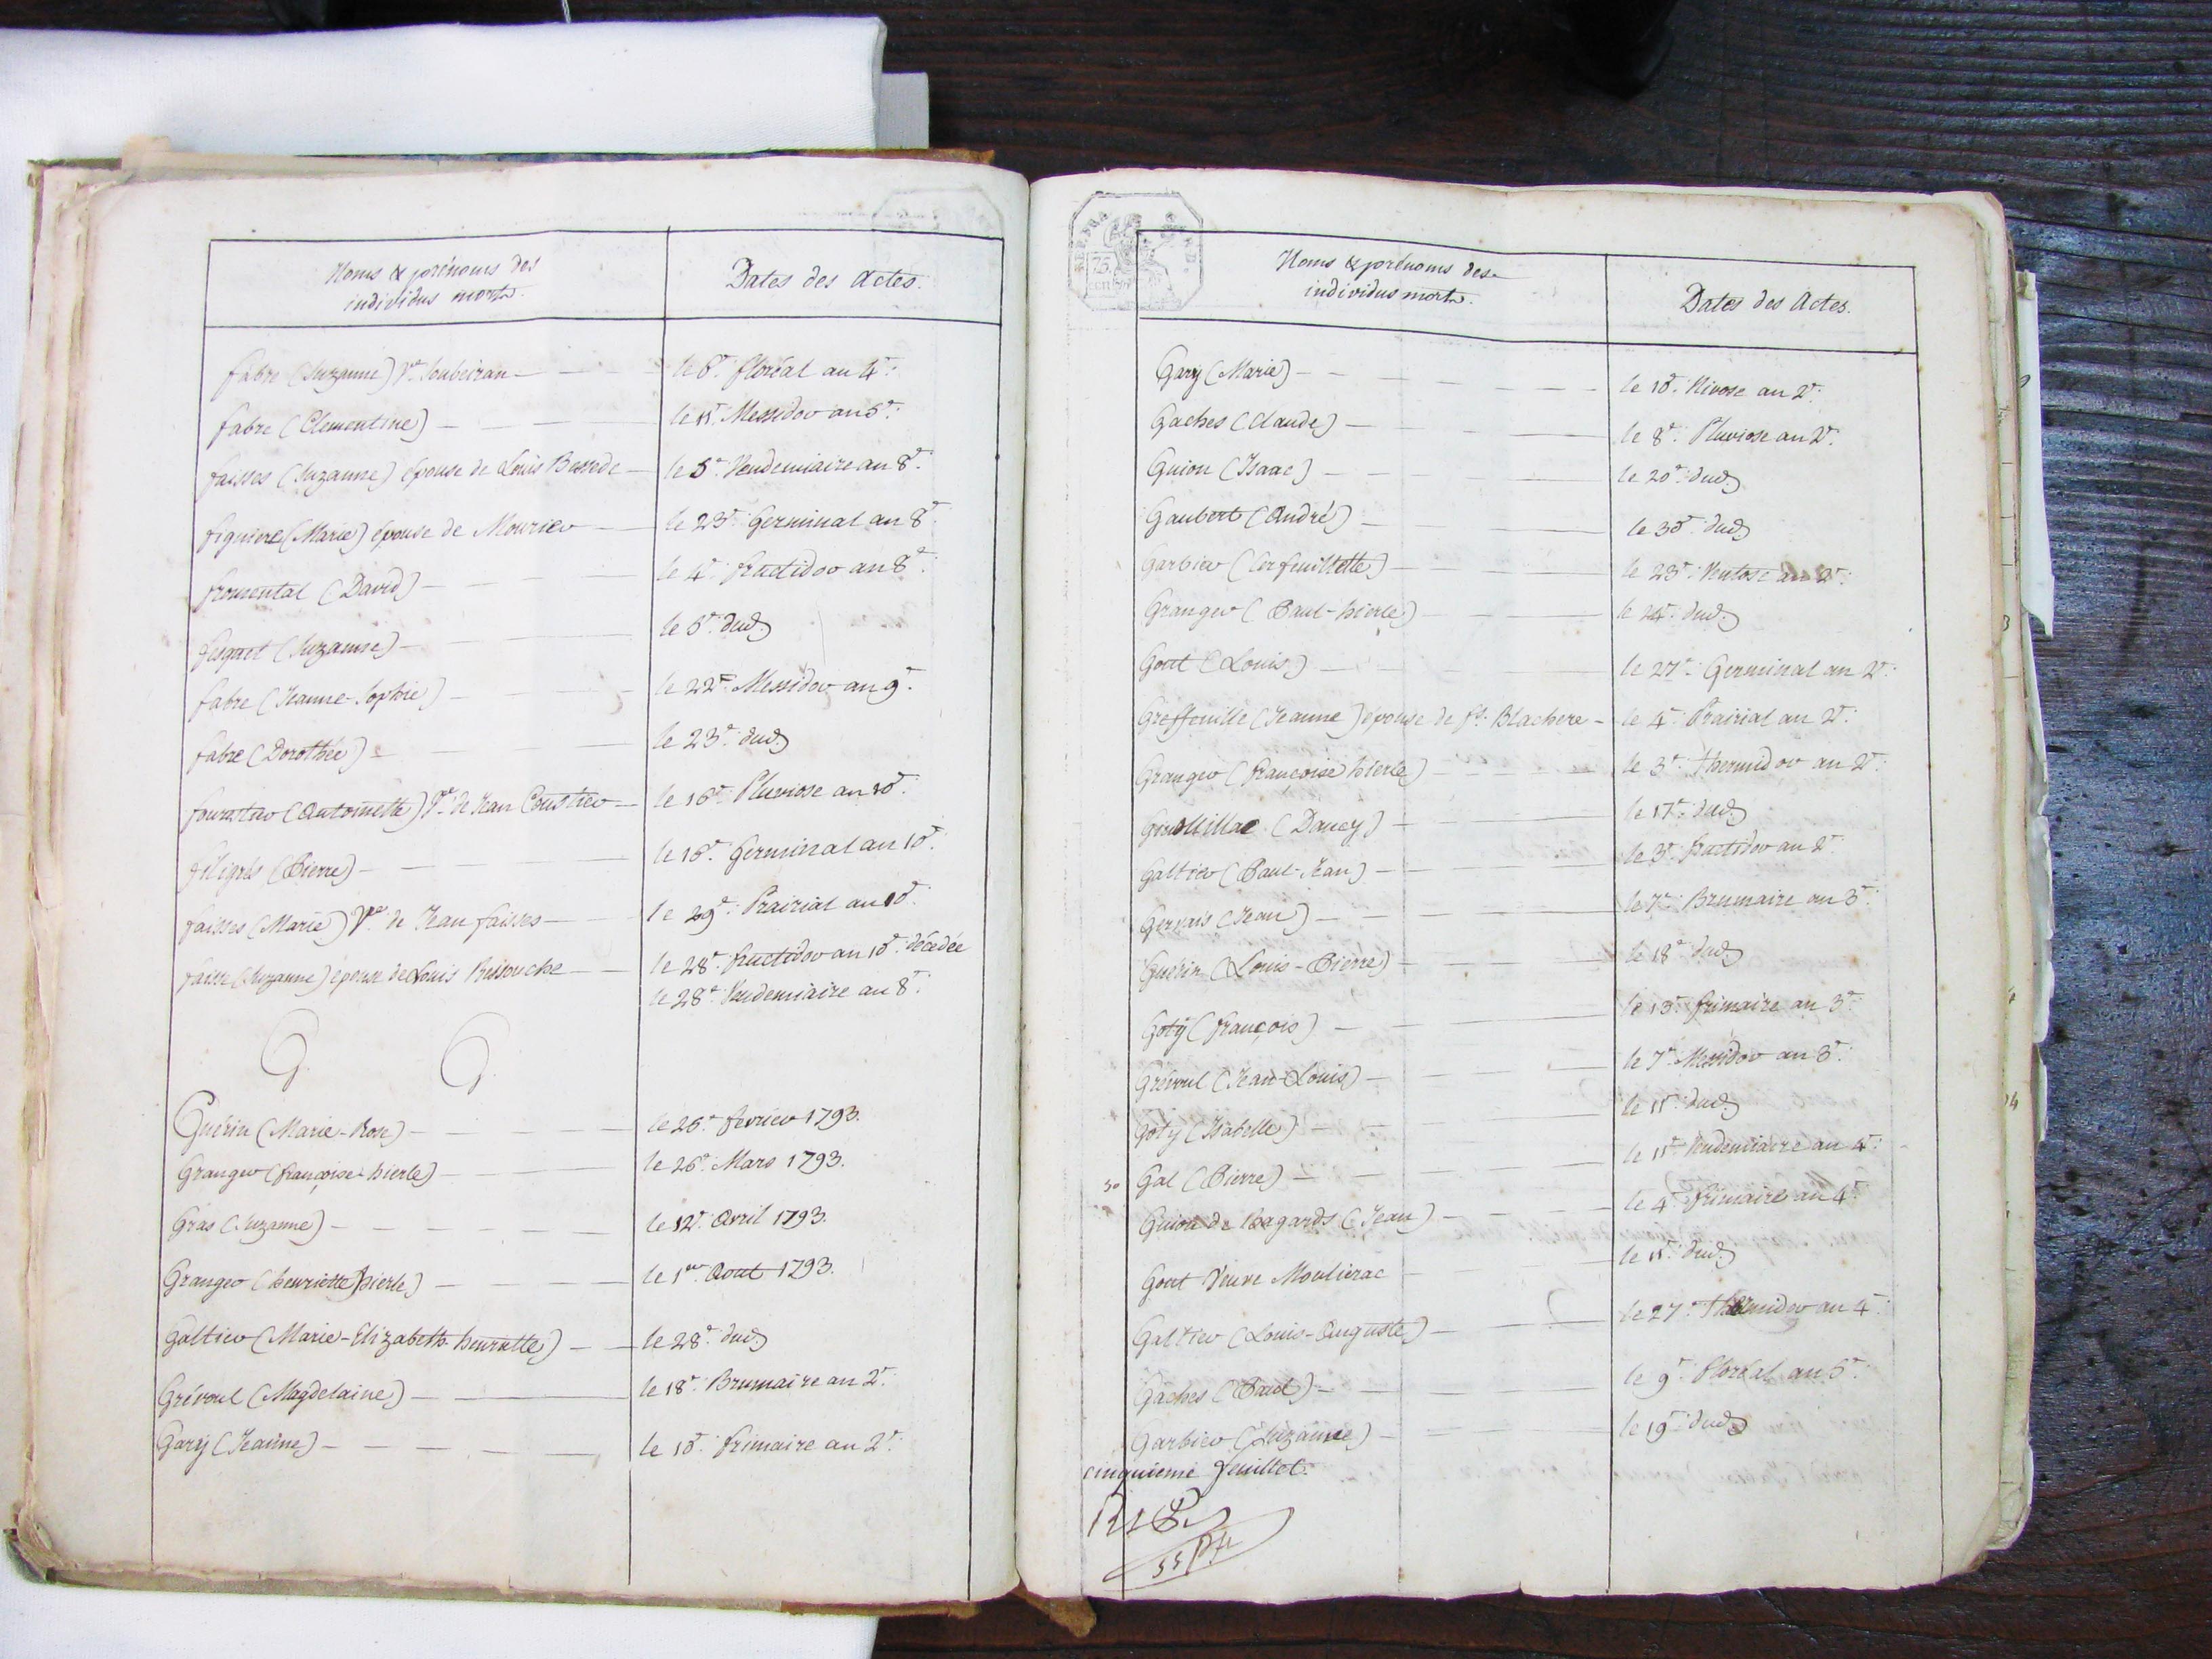 Noms & prénoms des
individus morts.
Dates des Actes.
fabre (Suzanne) Ve. Soubeiran le 6e. floréal an 4e.
fabre (Clementine) le 11e. Messidor an 5e.
faisses (Suzanne) épouse de Louis Bassede le 5e. Vendemiaire an 8e.
figuiere (Marie) épouse de Mourier le 23e. Germinal an 8e.
fromental (David) le 4e. fructidor an 8e.
fesquet (Suzanne) le 5e. dud.
fabre (Jeanne-Sophie) le 22e. Messidor an 9e.
fabre (Dorothée) le 23e. dud.
(Antoinette) Ve. de Jean Coustier le 16e. Pluviose an 10e.
filigrès (Pierre) le 16e. Germinal an 10e.
faisses (Marie) Ve. de Jean faisses le 29e. Prairial an 10e.
faisse (Suzanne) épouse de Louis le 28e. fructidor an 10e. décédée
le 28e. Vendemiaire an 8e.
G. G.
Guérin (Marie-Rose) le 26e. fevrier 1793.
Granger (françoise-hierle) le 26e. Mars 1793.
Gras (Suzanne) le 12e. Avril 1793.
Granger (henriette hierle) le 1er. Aout 1793.
Galtier (Marie-Elizabeth-henriette) le 28e. dud.
Grévoul (Magdelaine) le 18e. Brumaire an 2e.
Gary (Jeanne) le 10e. frimaire an 2e.
Noms & prénoms des
individus morts.
Dates des Actes.
Gary (Marie) le 10e. Nivose an 2e.
Gaches (Claude) le 8e. Pluviose an 2e.
Guion (Isaac) le 20e. dud.
Gaubert (André) le 30e. dud.
Garbier (Cerfeuillette) le 23e. Ventose an 2e.
Granger (Paul-hierle) le 24e. dud.
Gout (Louis) le 27e. Germinal an 2e.
Greffeuille (Jeanne) épouse de fs. Blachere le 4e. Prairial an 2e.
Granger (françoise hierle) le 3e. thermidor an 2e.
(Dancy) le 17e. dud.
Galtier (Paul-Jean) le 3e. fructidor an 2e.
Gervais (Jean) le 7e. Brumaire an 3e.
Guérin (Louis-Pierre) le 18e. dud.
Goty (françois) le 13e. frimaire an 3e.
Grévoul (Jean-Louis) le 7e. Messidor an 3e.
Goty (Isabelle) le 11e. dud.
Gal (Pierre) le 11e. Vendemiaire an 4e.
Guion de Pagards (Jean) le 4e. frimaire an 4e.
Gout Veuve Moulierac le 11e. dud.
Galtier (Louis-Auguste) le 27e. thermidor an 4e.
Gaches (Paul) le 9e. floréal an 5e.
Garbier (Suzanne) le 19e. dud.
cinquieme feuillet.